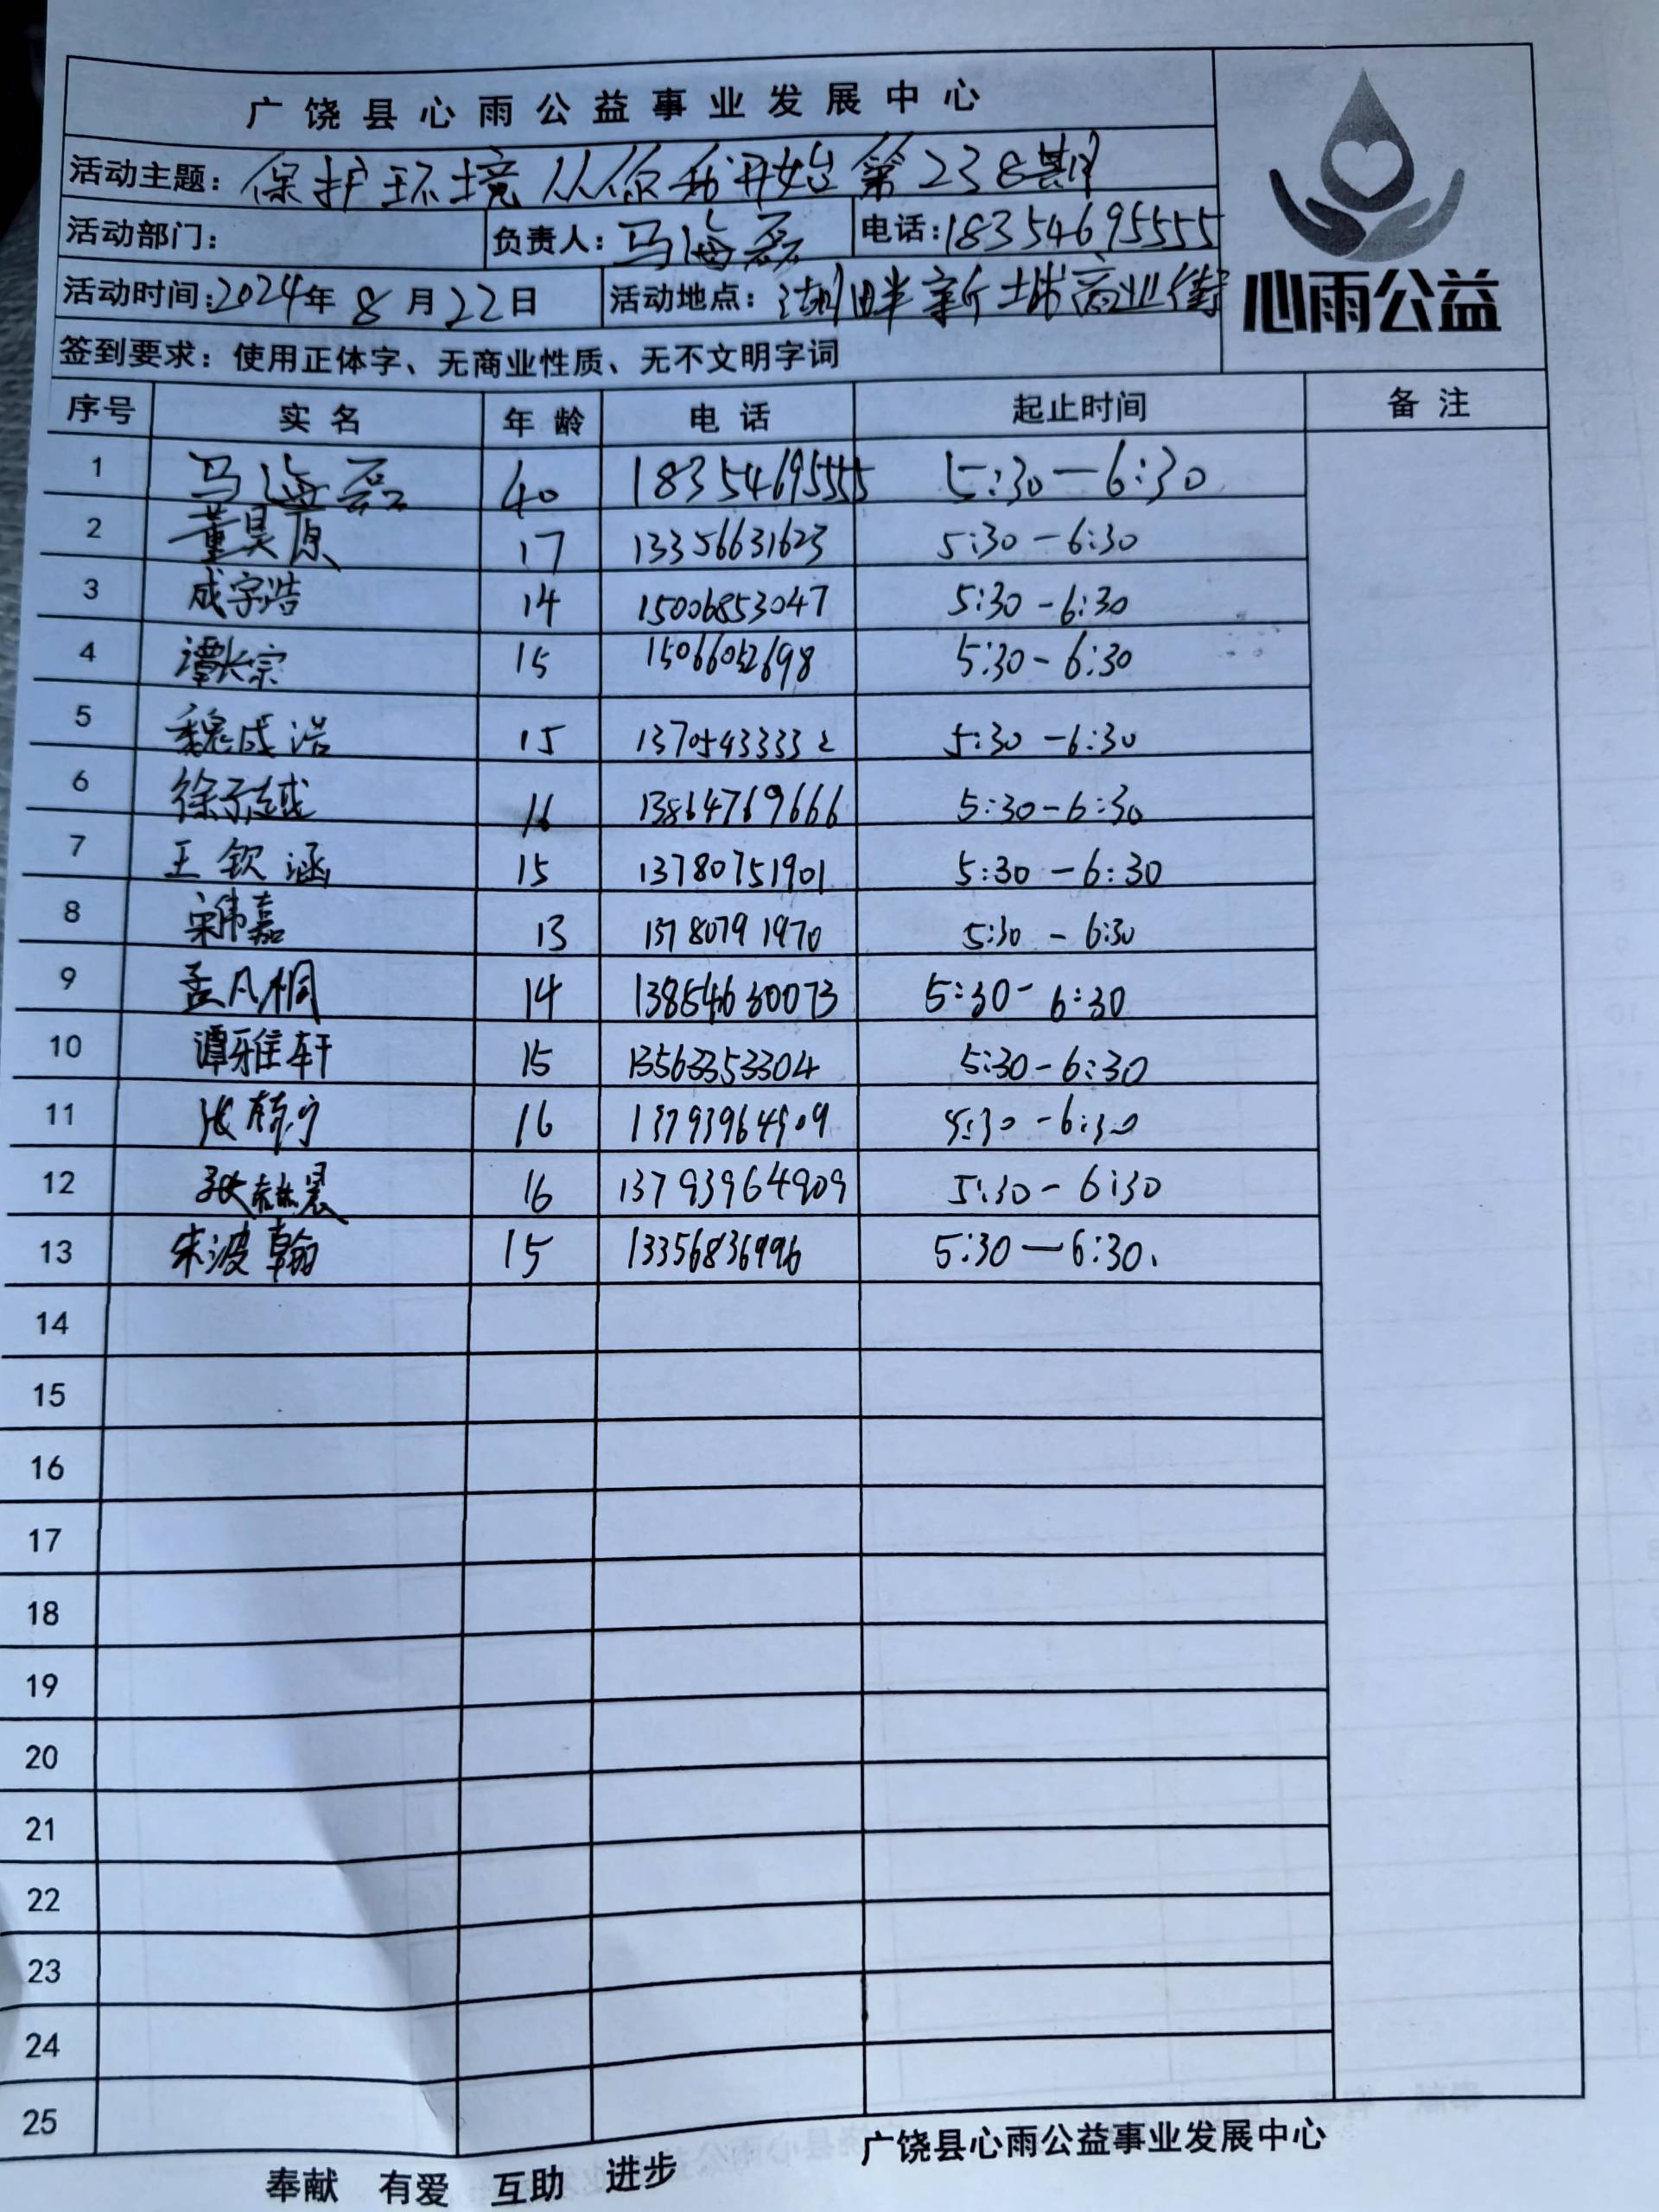 广饶县心雨公益事业发展中心
心雨公益
活动主题：保护环境从你我开始第238期
活动部门： 负责人：马海磊 电话：18354695555
活动时间：2024年8月22日 活动地点：湖畔新城商业街
签到要求：使用正体字、无商业性质、无不文明字词
序号 实名 年龄 电话 起止时间 备注
1 马海磊 40 18354695555 5:30—6:30
2 董昊原 17 13356631623 5:30-6:30
3 成宇浩 14 15006853047 5:30-6:30
4 谭长宗 15 15066052698 5:30-6:30
5 魏成浩 15 13705433332 5:30-6:30
6 徐子越 16 13864769666 5:30-6:30
7 王钦涵 15 13780751901 5:30-6:30
8 宋伟嘉 13 13780791970 5:30-6:30
9 孟凡桐 14 13854630073 5:30-6:30
10 谭雅轩 15 13563353304 5:30-6:30
11 张 16 13793964909 5:30-6:30
12 张赫晨 16 13793964909 5:30-6:30
13 宋波翰 15 13356836996 5:30—6:30.
14
15
16
17
18
19
20
21
22
23
24
25
奉献 有爱 互助 进步 广饶县心雨公益事业发展中心